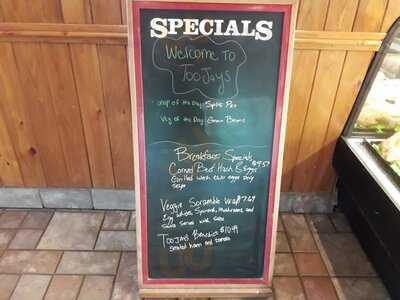 SPECIALS
Welcome To
TooJays
Soup of the Day: Split Pea
Veg of the Day: Green Beans
Breakfast Specials
Corned Beef Hash & Eggs $9.57
Grilled with two eggs any
style
Veggie Scramble Wrap 7.69
Egg whites, Spinach, Mushrooms and
Swiss served with salsa
TooJays Benedict $10.99
smoked ham and tomato